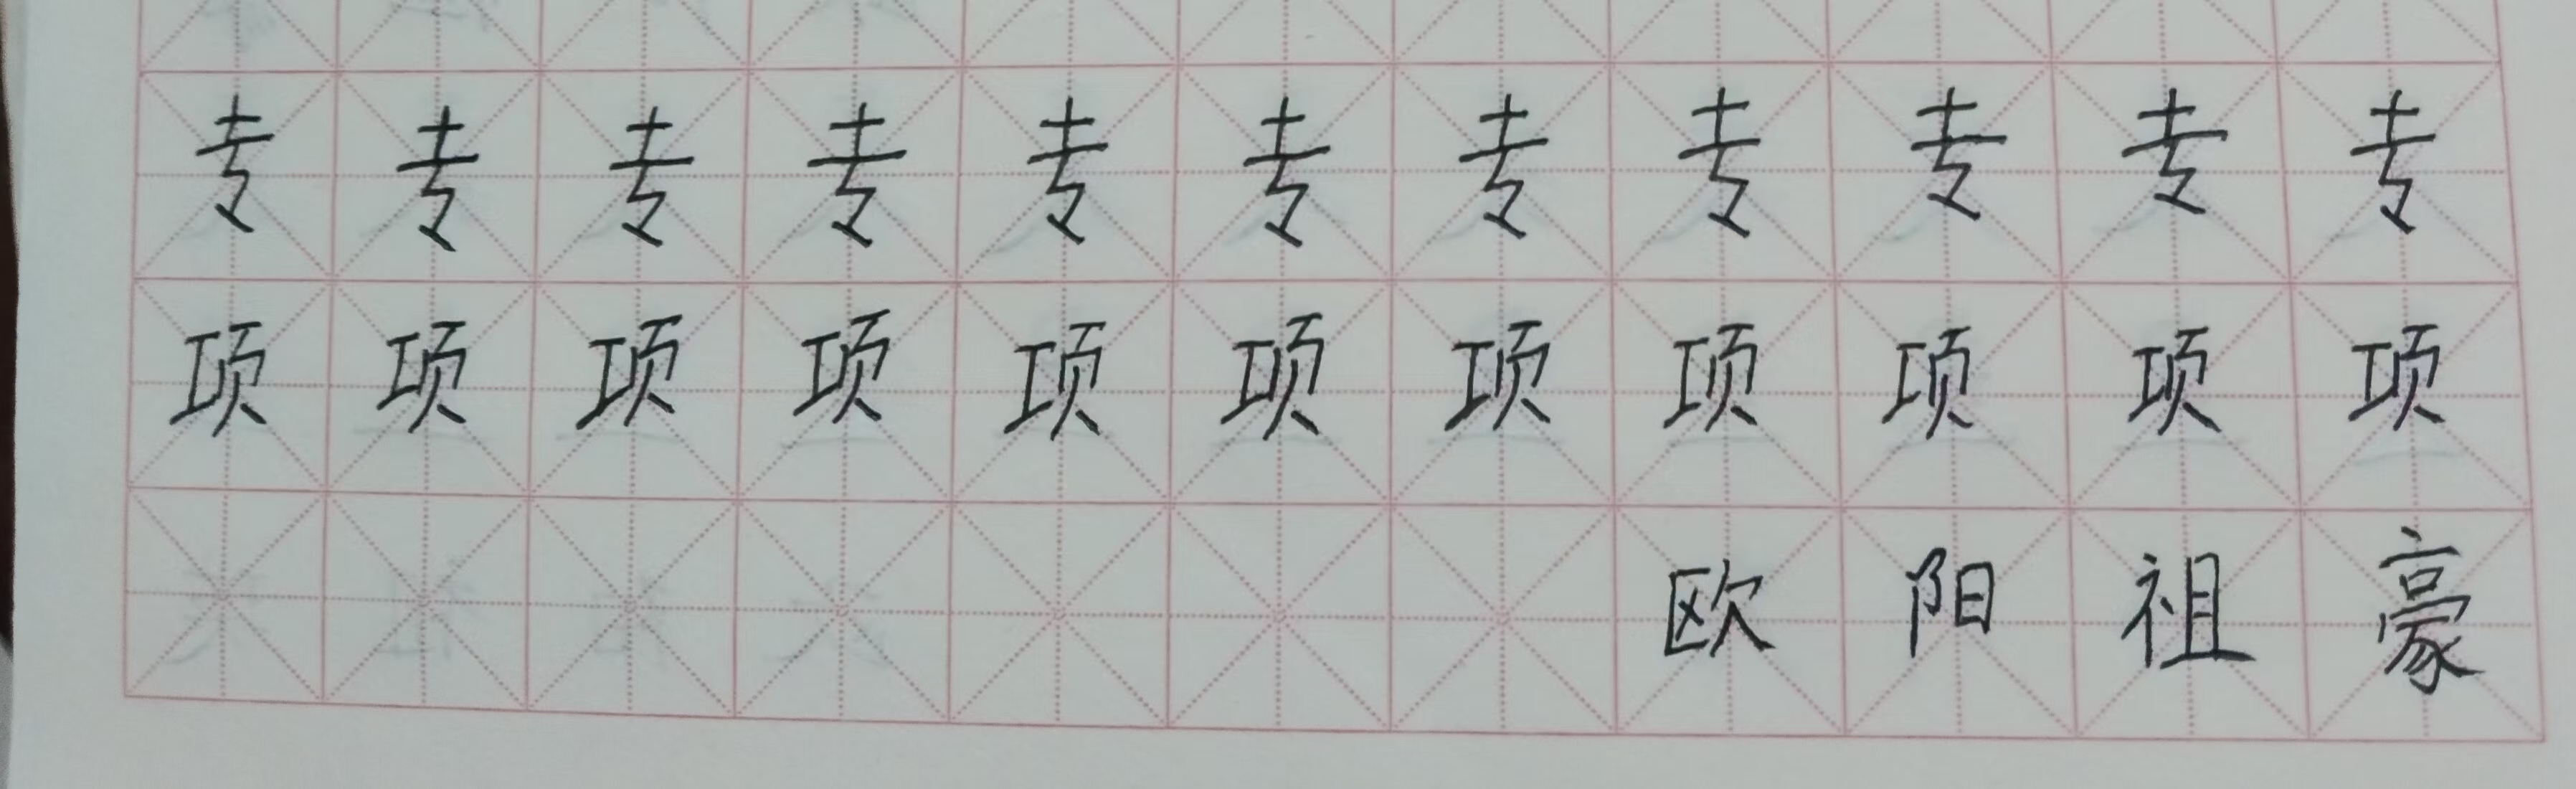 专专专专专专专专专专专
项项项项项项项项项项项
欧阳祖豪